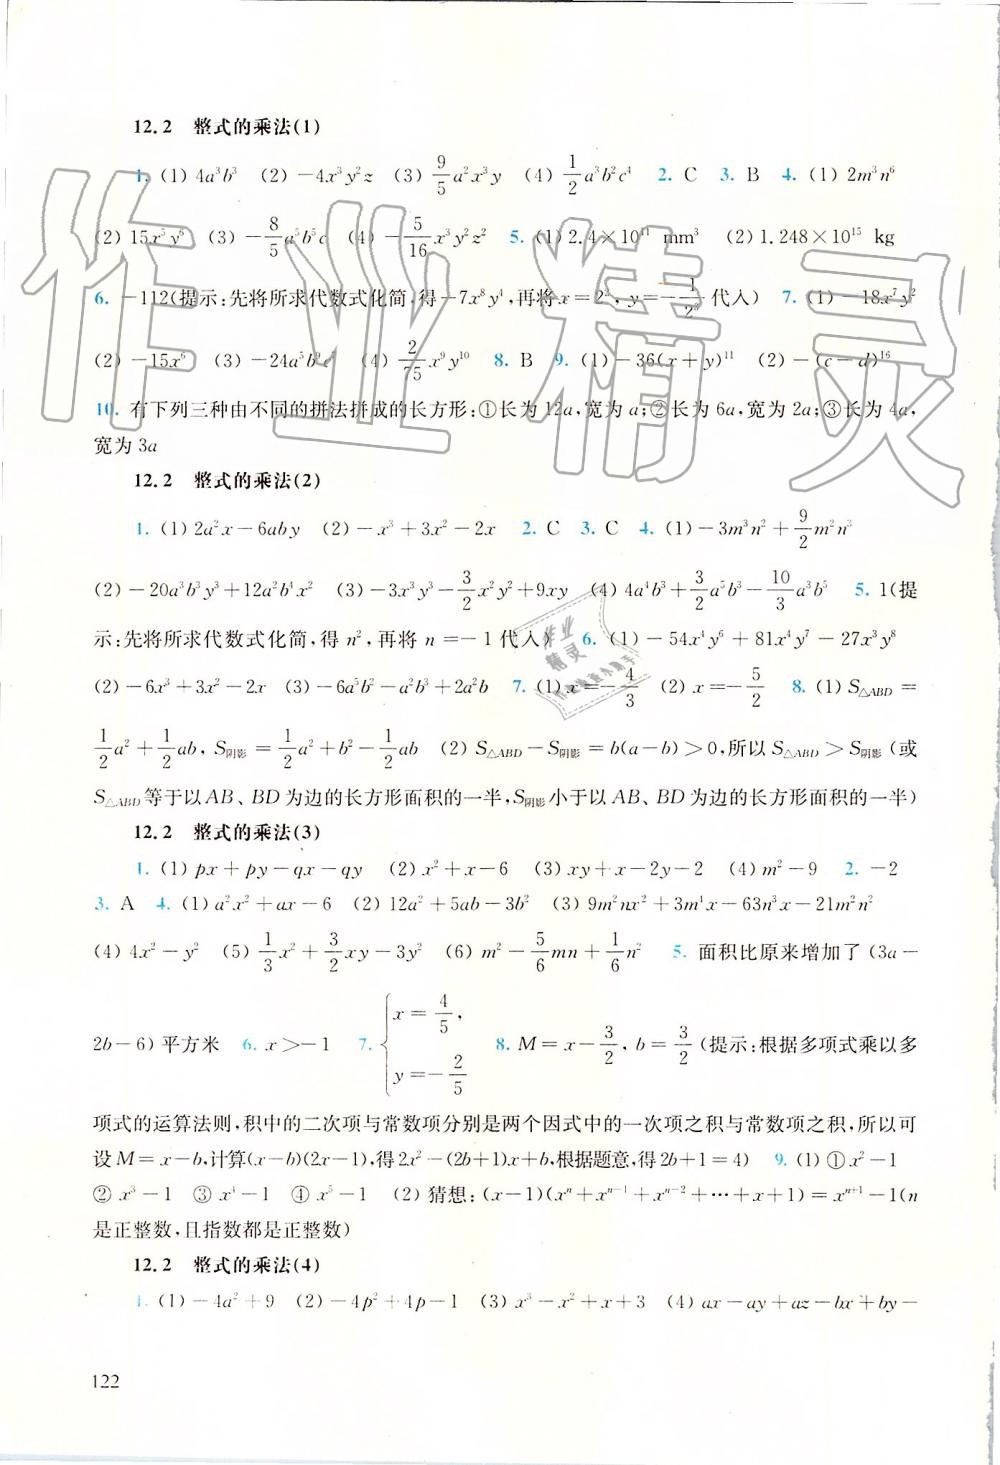 12.2 整式的乘法(1)
1. (1) 4a³b³ (2) −4x³y²z (3) 9/5 a²x³y (4) 1/2 a³b²c⁴ 2. C 3. B 4. (1) 2m³n⁶
(2) 15x⁵y⁶ (3) −8/5 a⁵b⁵c (4) −5/16 x³y²z² 5. (1) 2.4×10¹¹ mm³ (2) 1.248×10¹⁵ kg
6. −112(提示:先将所求代数式化简,得−7x⁸y⁴,再将 x=2², y=−1/2³ 代入) 7. (1) −18x⁷y²
(2) −15x⁶ (3) −24a⁵b⁶c⁴ (4) 2/75 x⁹y¹⁰ 8. B 9. (1) −36(x+y)¹¹ (2) −(c−d)¹⁶
10. 有下列三种由不同的拼法拼成的长方形:①长为12a,宽为a;②长为6a,宽为2a;③长为4a,
宽为3a
12.2 整式的乘法(2)
1. (1) 2a²x−6aby (2) −x³+3x²−2x 2. C 3. C 4. (1) −3m³n²+9/2 m²n³
(2) −20a³b³y³+12a²b⁴x² (3) −3x³y³−3/2 x²y²+9xy (4) 4a⁴b³+3/2 a⁵b³−10/3 a³b⁵ 5. 1(提
示:先将所求代数式化简,得 n²,再将 n=−1代入) 6. (1) −54x⁴y⁶+81x⁴y⁷−27x³y⁸
(2) −6x³+3x²−2x (3) −6a⁵b²−a²b³+2a²b 7. (1) x=−4/3 (2) x=−5/2 8. (1) S△ABD=
1/2 a²+1/2 ab, S阴影=1/2 a²+b²−1/2 ab (2) S△ABD−S阴影=b(a−b)>0,所以 S△ABD>S阴影(或
S△ABD等于以AB、BD为边的长方形面积的一半,S阴影小于以AB、BD为边的长方形面积的一半)
12.2 整式的乘法(3)
1. (1) px+py−qx−qy (2) x²+x−6 (3) xy+x−2y−2 (4) m²−9 2. −2
3. A 4. (1) a²x²+ax−6 (2) 12a²+5ab−3b² (3) 9m²nx²+3m⁴x−63n³x−21m²n²
(4) 4x²−y² (5) 1/3 x²+3/2 xy−3y² (6) m²−5/6 mn+1/6 n² 5. 面积比原来增加了(3a−
2b−6)平方米 6. x>−1 7. { x=4/5, y=−2/5 8. M=x−3/2, b=3/2 (提示:根据多项式乘以多
项式的运算法则,积中的二次项与常数项分别是两个因式中的一次项之积与常数项之积,所以可
设M=x−b,计算(x−b)(2x−1),得2x²−(2b+1)x+b,根据题意,得2b+1=4) 9. (1) ①x²−1
②x³−1 ③x⁴−1 ④x⁵−1 (2) 猜想:(x−1)(xⁿ+xⁿ⁻¹+xⁿ⁻²+⋯+x+1)=xⁿ⁺¹−1(n
是正整数,且指数都是正整数)
12.2 整式的乘法(4)
1. (1) −4a²+9 (2) −4p²+4p−1 (3) x³−x²+x+3 (4) ax−ay+az−bx+by−
122
作业精灵
作业
精灵